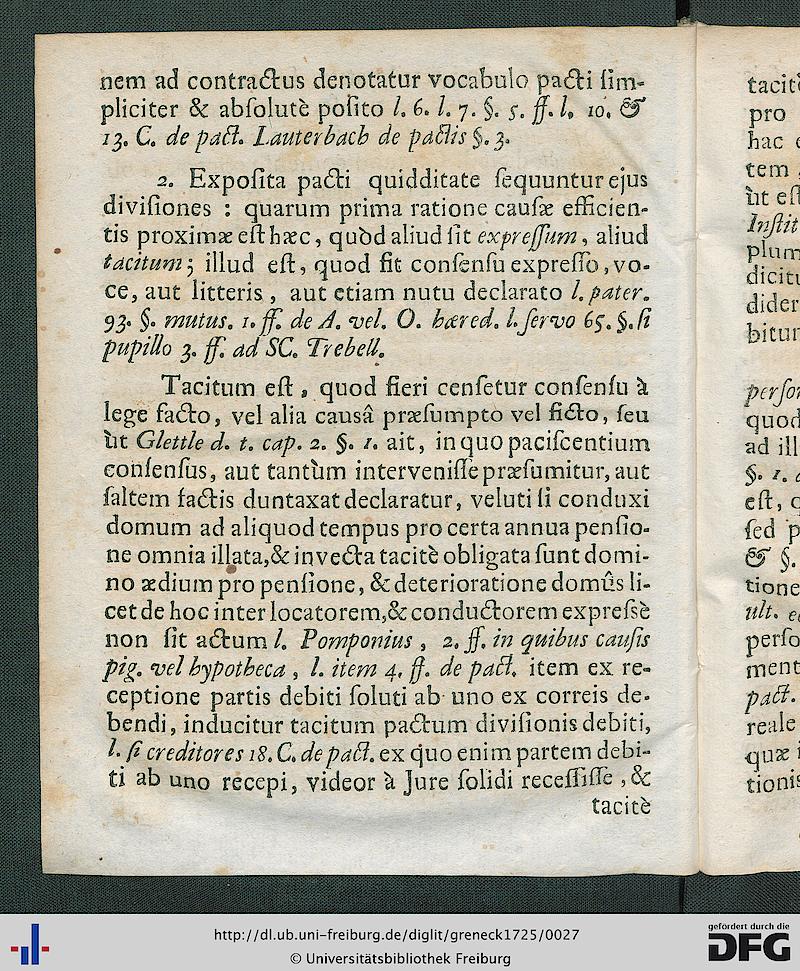 nem ad contractus denotatur vocabulo pacti ſim-
pliciter & abſolutè poſito l. 6. l. 7. §. 5. ff. l. 10. &
13. C. de pact. Lauterbach de pactis §. 3.
2. Expoſita pacti quidditate ſequuntur ejus
diviſiones : quarum prima ratione cauſæ efficien-
tis proximæ eſt hæc, quòd aliud ſit expreſſum, aliud
tacitum; illud eſt, quod fit conſenſu expreſſo, vo-
ce, aut litteris, aut etiam nutu declarato l. pater.
93. §. mutus. 1. ff. de A. vel. O. hæred. l. ſervo 65. §. ſi
pupillo 3. ff. ad SC. Trebell.
Tacitum eſt, quod fieri cenſetur conſenſu à
lege facto, vel alia causâ præſumpto vel ficto, ſeu
ùt Glettle d. t. cap. 2. §. 1. ait, in quo paciſcentium
conſenſus, aut tantùm interveniſſe præſumitur, aut
ſaltem factis duntaxat declaratur, veluti ſi conduxi
domum ad aliquod tempus pro certa annua penſio-
ne omnia illata, & invecta tacitè obligata ſunt domi-
no ædium pro penſione, & deterioratione domûs li-
cet de hoc inter locatorem, & conductorem expreſsè
non ſit actum l. Pomponius, 2. ff. in quibus cauſis
pig. vel hypotheca, l. item 4. ff. de pact. item ex re-
ceptione partis debiti ſoluti ab uno ex correis de-
bendi, inducitur tacitum pactum diviſionis debiti,
l. ſi creditores 18. C. de pact. ex quo enim partem debi-
ti ab uno recepi, videor à Jure ſolidi receſſiſſe, &
tacitè
tacitè
pro
hac
tem
ùt eſt
Inſtit
plum
dicitu
dider
bitur
perſon
quod
ad ill
§. 1.
eſt,
ſed p
& §.
tione
ult.
perſo
ment
pact.
reale
quæ
tionis
http://dl.ub.uni-freiburg.de/diglit/greneck1725/0027
© Universitätsbibliothek Freiburg
gefördert durch die
DFG